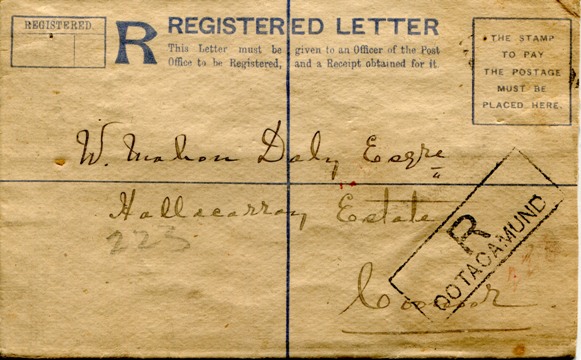 REGISTERED.
R REGISTERED LETTER
This Letter must be given to an Officer of the Post
Office to be Registered, and a Receipt obtained for it.
THE STAMP
TO PAY
THE POSTAGE
MUST BE
PLACED HERE.
W. Mahon Daly Esqre
Hallacarray Estate
223
R
OOTACAMUND
Coonoor